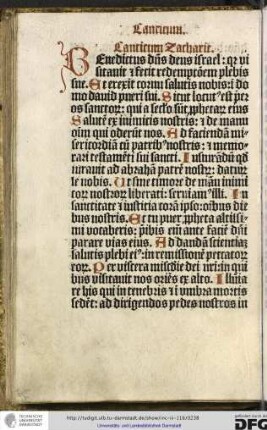 Canticum.
Canticum Zacharie.
BEnedictus dñs deus israel: qr vi
sitauit ⁊ fecit redemptõem plebis
sue. Et erexit cornu salutis nobis: i do
mo dauid pueri sui. Sicut locut' est p os
sanctor: qui a seclo sũt, ꝓphetar: eius
Salutẽ ex inimicis nostris: ⁊ de manu
oĩm qui oderũt nos. Ad faciendã mi
sericordiã cũ patrib' nostris: ⁊ memo
rari testamẽti sui sancti. Iusiurãdũ qd
iurauit ad abrahã patrẽ nostrũ: datur
se nobis. Ut sine timore de mãu inimi
cor nostror liberati: seruiam' illi. In
sanctitate ⁊ iusticia corã ipso: oĩbus die
bus nostris. Et tu puer ꝓpheta altissi
mi vocaberis: p̃ibis eñ ante faciẽ dñi
parare vias eius. Ad dandã scientiã
salutis plebi ei': in remissionẽ peccator
eor. Per viscera misc̃die dei nr̃i: in qui
bus visitauit nos oriẽs ex alto. Illumĩa
re his qui in tenebris ⁊ ĩ vmbra mortis
sedẽt: ad dirigendos pedes nostros in
http://tudigit.ulb.tu-darmstadt.de/show/inc-iii-118/0238
Universitäts- und Landesbibliothek Darmstadt
DFG